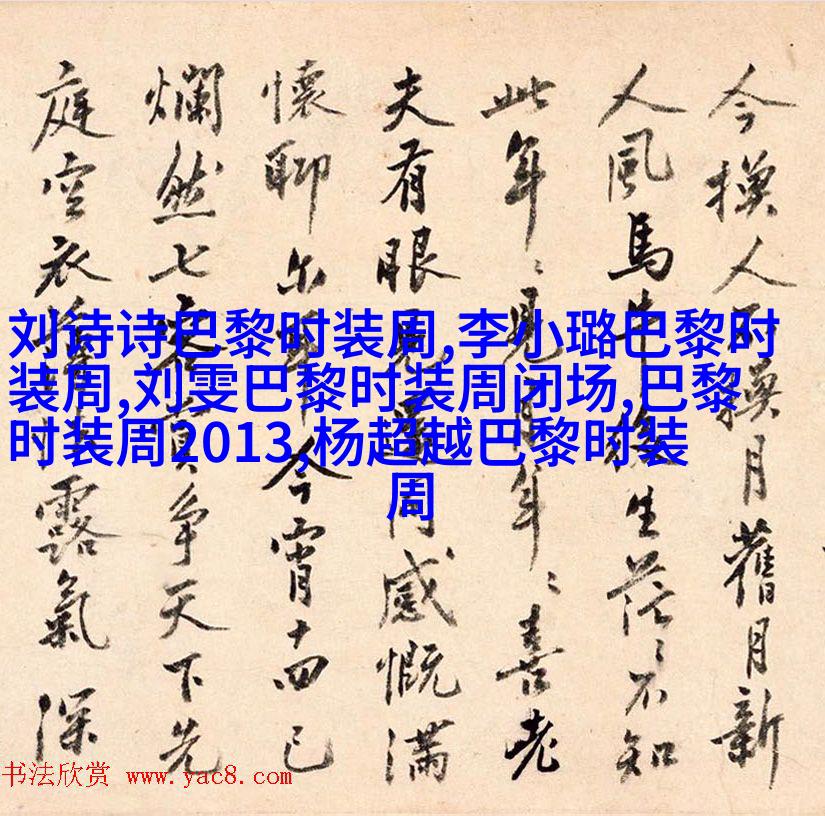 今換人不換月舊月新
人風馬牛後生茫〻不知
此年〻見年〻喜老
夫有眼同感慨滿
懷聊爾今宵十四已
爛然七客真爭天下先
庭空衣露氣深
刘诗诗巴黎时装周,李小璐巴黎时
装周,刘雯巴黎时装周闭场,巴黎
时装周2013,杨超越巴黎时装
周
书法欣赏 www.yac8.com